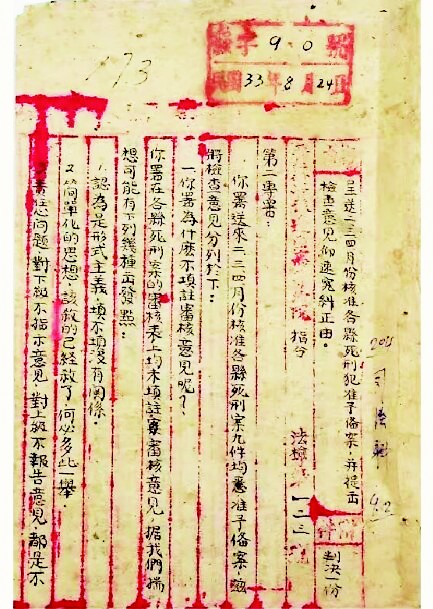 字 9 0 號
民國 33 年 8 月 24 日
173
呈送二三四月份核准各縣死刑犯准予備案,并提出
檢查意見仰遵糾正由。
附件 判決一份
指令 法檢 一二三
第二專署:
你署送來二三四月份核准各縣死刑案九件均悉准予備案,茲
將檢查意見分列於下:
一、你署為什麽不填註審核意見呢?
你署在各縣死刑案的審核表上均未填註審核意見,據我們揣
想可能有下列幾種出發點:
1.認為是形式主義,填不填没有関係。
2.简單化的思想,該殺的已經殺了,何必多些一舉。
責任心問題,對下級不指示意見,對上級不報告意見,都是不